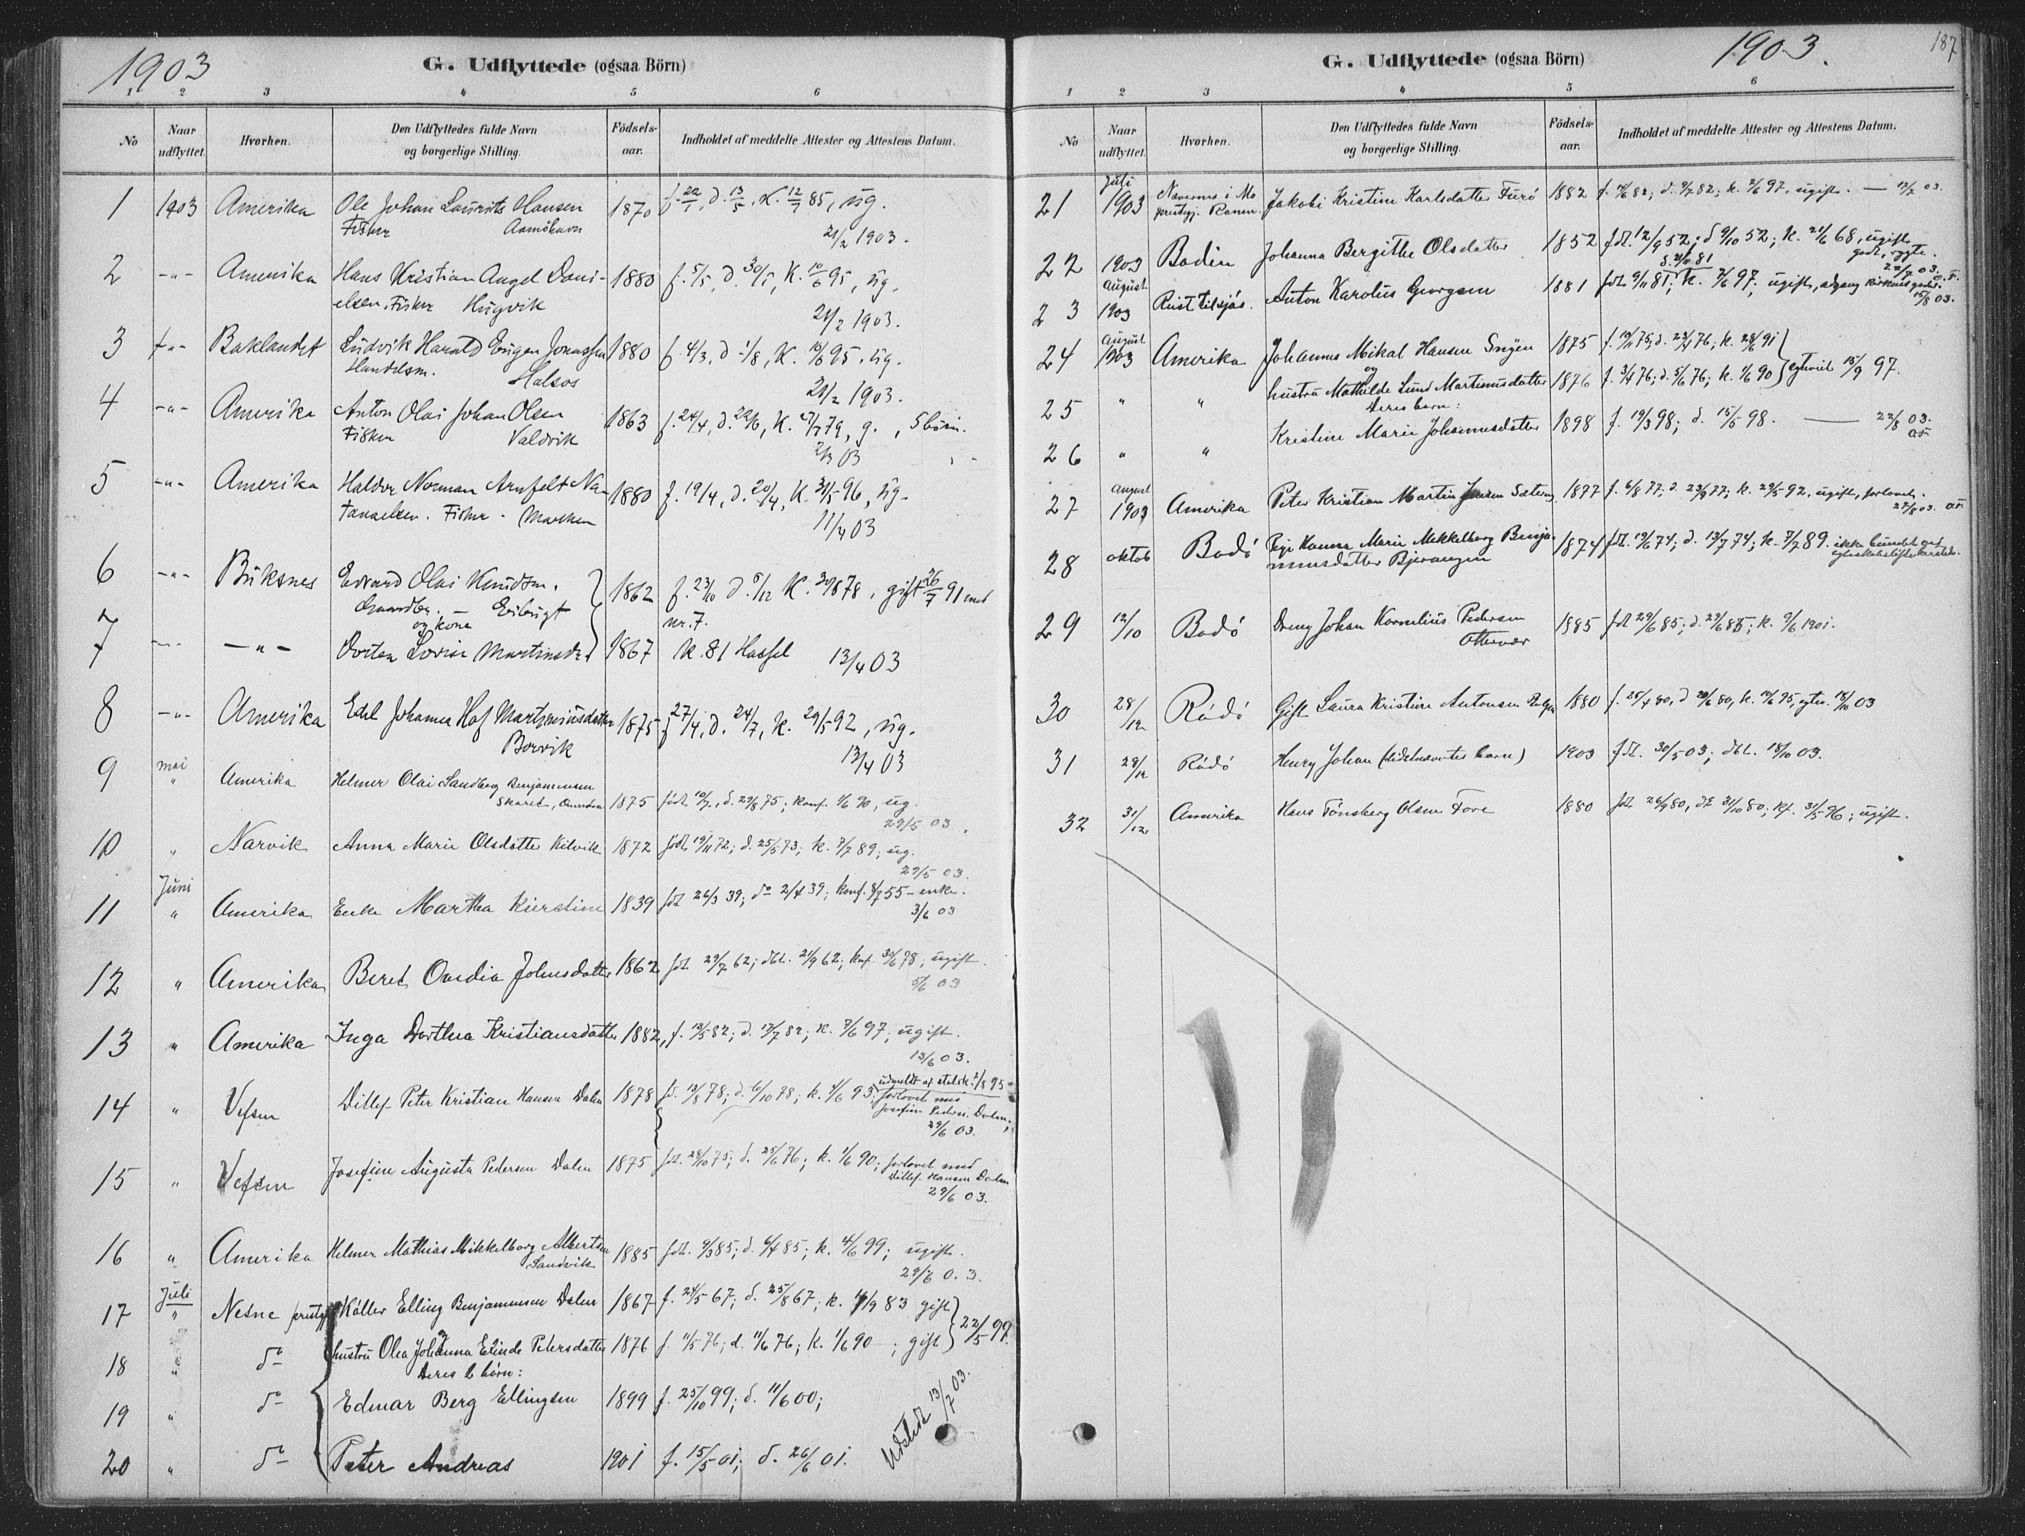 1903
G. Udflyttede (ogsaa Börn)
1 2 3 4 5 6
No
Naar udflyttet.
Hvorhen.
Den Udflyttedes fulde Navn og borgerlige Stilling.
Födselsaar.
Indholdet af meddelte Attester og Attestens Datum.
1 1903 Amerika Ole Johan Laurits Hansen 1870 f. 22/1, d. 13/5, K. 12/7 85, ug.
Fisker 21/2 1903.
2 -"- Amerika Hans Kristian Angel Dani- 1880 f. 5/5, d. 30/5, K. 10/6 95, ug.
elsen. Fisker Hugvik 21/2 1903.
3 -"- Baklandet Ludvik Harald Eugen Jonassen 1880 f. 4/3, d. 1/8, K. 10/6 95. ug.
Handelsm. Halsos 21/2 1903.
4 -"- Amerika Anton Olai Johan Olsen 1863 f. 24/4, d. 29/6, K. 27/7 79, g., 5 börn.
Fisker Valdvik 2/3 03
5 -"- Amerika Haldor Norman Arnfelt Na- 1880 f. 19/4, d. 20/4, K. 31/5 96, ug.
tanaelsen. Fisker. 11/4 03
6 -"- Buksnes Edvard Olai Knudsen. 1862 f. 23/10 d. 5/12 K. 30/8 78, gift 26/7 91 med
og kone nr. 7.
7 -"- -"- Dortea Lovise Martinsdr. 1867 K. 81 Hassel 13/4 03
8 -"- Amerika Edel Johanna Hof Martiniusdatter 1875 f. 27/4, d. 24/7, k. 29/5 92, ug.
Borvik 13/4 03
mai
9 " Amerika Helmer Olai Sandberg Benjaminsen
1875 född 10/2, d. 29/8 75; konf. 1/6 90, ug.
29/5 03.
10 " Narvik Anna Marie Olsdatter Kilvik 1872 född 19/11 72; d. 25/5 73; k. 7/7 89; ug.
29/5 03.
Juni
11 " Amerika Enke Martha Kirstine 1839 fdt 26/3 39; do 2/4 39; konf. 8/7 55 – enke.
3/6 03
12 " Amerika Beret Ovedia Johnsdatter 1862 fdt 29/7 62; dbt. 21/9 62; knf. 30/6 78; ugift.
5/6 03
13 " Amerika Inga Dorthea Kristiansdatter 1882, f. 13/5 82; d. 17/7 82; k. 7/6 97; ugift.
13/6 03.
14 " Vefsen Ditlef Peter Kristian Hansen Dalen 1878 fd. 13/8 78; d. 6/10 78; k. 4/6 93; udmeldt af statsk. 2/8 95
forlovet med
Josefine Peders. Dalen;
29/6 03.
15 " Vefsen Josefine Augusta Pedersen Dalen 1875 fdt. 28/10 75; d. 25/6 76; k. 1/6 90; forlovet med
Ditlef Hansen Dalen
29/6 03.
16 " Amerika Helmer Mathias Mikkelborg Albertsen 1885 fdt. 9/3 85; d. 6/4 85; k. 4/6 99; ugift.
Sandvik 29/6 0.3.
Juli
17 " Nesne prstgj Köller Elling Benjaminsen Dalen 1867 f. 24/5 67; d. 25/8 67; k. 9/9 83 gift
18 " do hustru Olea Johanna Elinde Petersdatter 1876 f. 11/5 76; d. 11/6 76; k. 1/6 90 –; gift 22/5 99.
Deres 2 börn:
19 " do Edmar Berg Ellingsen 1899 f. 25/10 99; d. 11/6 00;
20 " do Peter Andreas 1901 f. 15/5 01; d. 26/6 01.
Udstedt 13/7 03.
187
1903.
G. Udflyttede (ogsaa Börn)
1 2 3 4 5 6
No
Naar udflyttet.
Hvorhen.
Den Udflyttedes fulde Navn og borgerlige Stilling.
Födselsaar.
Indholdet af meddelte Attester og Attestens Datum.
Juli
21 1903 Nævernes i Mo Jakobi Kristine Karlsdatter Furö 1882 f. 11/6 82; d. 9/7 82; k. 7/6 97, ugift. – 13/7 03.
prstgj. Ranen
22 1903 Bodin Johanna Bergithe Olsdatter 1852 fdt. 12/9 52; d 9/10 52; k. 21/6 68, ugift
gode rygte.
22/7 03.
August
23 1903 Reist tilsjös. Anton Karolius Georgsen 1881 fdt. 9/11 81; k. 7/6 97; ugift,
15/8 03.
August
24 1903 Amerika Johannes Mikal Hansen 1875 f. 10/11 75; d. 23/4 76; k. 28/6 91
og egteviet 15/9 97.
25 " " hustru Mathilde Lund Martinusdatter 1876 f. 3/4 76; d. 5/6 76; k. 1/6 90
Deres barn:
26 " " Kristine Marie Johannesdatter 1898 f. 19/3 98; d. 15/5 98. – 22/8 03.
august
27 1903 Amerika Peter Kristian Martin Jensen 1877 f. 6/8 77; d. 23/9 77; k. 29/5 92, ugift, forlovet.
27/8 03.
28 oktob Bodö Pige Hanna Marie Mekkelborg Benja- 1874 fdt. 13/6 74; d. 13/7 74; k. 7/7 89. ikke bundet ved
minsdatter Bjerangen
29 12/10 Bodö Dreng Johan Kornelius Pedersen 1885 fdt 29/6 85; d. 29/6 85; k. 9/6 1901.
Ottervær
30 28/12 Rödö Gift Laura Kristine Antonsen 1880 f. 25/4 80, d 20/6 80, k. 16/6 95, egtev. 18/10 03
31 28/12 Rödö Henry Johan (sidstnævntes barn) 1903 fdt. 30/5 03; dbt. 18/10 03.
32 31/12 Amerika Hans Tönsberg Olsen Fore 1880 fdt. 26/9 80, dt 31/10 80; kf. 31/5 96; ugift.